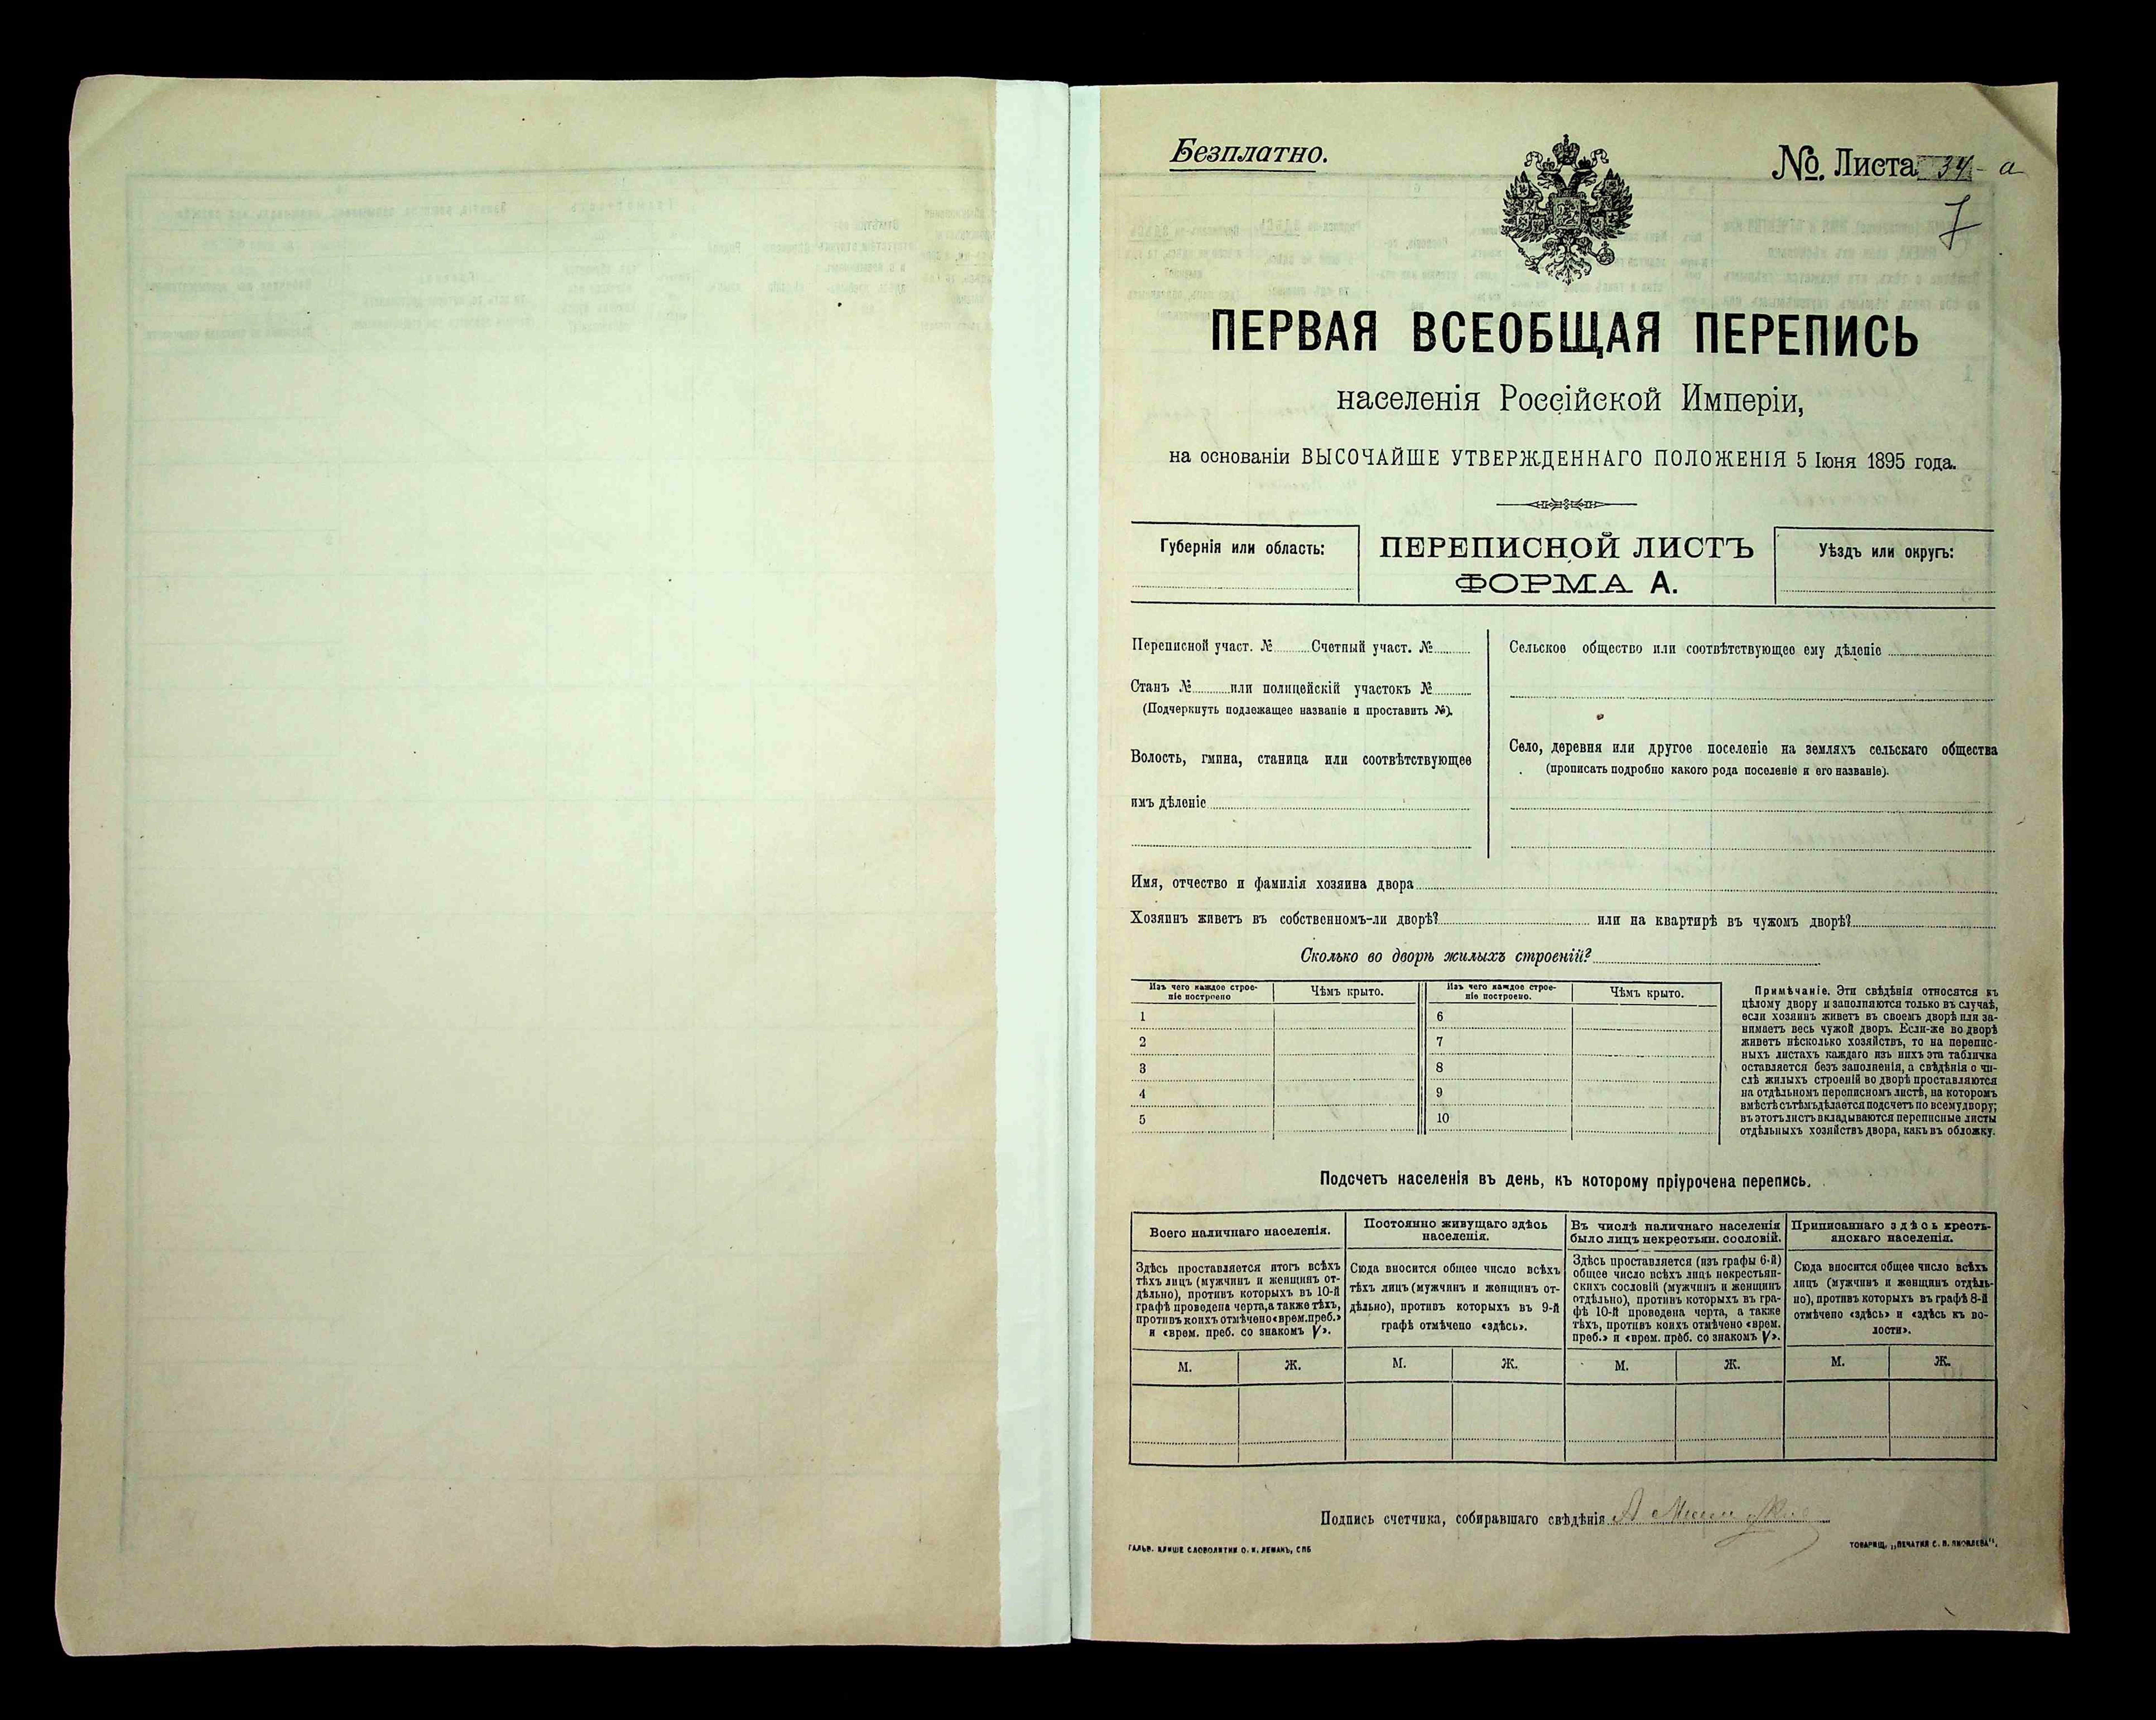 Безплатно.
№. Листа 34 - а
7
ПЕРВАЯ ВСЕОБЩАЯ ПЕРЕПИСЬ
населенія Россійской Имперіи,
на основаніи ВЫСОЧАЙШЕ УТВЕРЖДЕННАГО ПОЛОЖЕНІЯ 5 Іюня 1895 года.
Губернія или область:
ПЕРЕПИСНОЙ ЛИСТЪ
ФОРМА А.
Уѣздъ или округъ:
Переписной участ. № Счетный участ. №
Станъ № или полицейскій участокъ №
(Подчеркнуть подлежащее названіе и проставить №).
Волость, гмина, станица или соотвѣтствующее
имъ дѣленіе
Сельское общество или соотвѣтствующее ему дѣленіе
Село, деревня или другое поселеніе на земляхъ сельскаго общества
(прописать подробно какого рода поселеніе и его названіе).
Имя, отчество и фамилія хозяина двора
Хозяинъ живетъ въ собственномъ-ли дворѣ? или на квартирѣ въ чужомъ дворѣ?
Сколько во дворѣ жилыхъ строеній?
Изъ чего каждое строе-
ніе построено
Чѣмъ крыто.
Изъ чего каждое строе-
ніе построено.
Чѣмъ крыто.
1 6
2 7
3 8
4 9
5 10
Примѣчаніе. Эти свѣдѣнія относятся къ
цѣлому двору и заполняются только въ случаѣ,
если хозяинъ живетъ въ своемъ дворѣ или за-
нимаетъ весь чужой дворъ. Если-же во дворѣ
живетъ нѣсколько хозяйствъ, то на перепис-
ныхъ листахъ каждаго изъ нихъ эта табличка
оставляется безъ заполненія, а свѣдѣнія о чи-
слѣ жилыхъ строеній во дворѣ проставляются
на отдѣльномъ переписномъ листѣ, на которомъ
вмѣстѣ съ тѣмъ дѣлается подсчетъ по всему двору;
въ этотъ листъ вкладываются переписные листы
отдѣльныхъ хозяйствъ двора, какъ въ обложку.
Подсчетъ населенія въ день, къ которому пріурочена перепись.
Всего наличнаго населенія.
Здѣсь проставляется итогъ всѣхъ
тѣхъ лицъ (мужчинъ и женщинъ от-
дѣльно), противъ которыхъ въ 10-й
графѣ проведена черта, а также тѣхъ,
противъ коихъ отмѣчено «врем. преб.»
и «врем. преб. со знакомъ V».
М. Ж.
Постоянно живущаго здѣсь
населенія.
Сюда вносится общее число всѣхъ
тѣхъ лицъ (мужчинъ и женщинъ от-
дѣльно), противъ которыхъ въ 9-й
графѣ отмѣчено «здѣсь».
М. Ж.
Въ числѣ наличнаго населенія
было лицъ некрестьян. сословій.
Здѣсь проставляется (изъ графы 6-й)
общее число всѣхъ лицъ некрестьян-
скихъ сословій (мужчинъ и женщинъ
отдѣльно), противъ которыхъ въ гра-
фѣ 10-й проведена черта, а также
тѣхъ, противъ коихъ отмѣчено «врем.
преб.» и «врем. преб. со знакомъ V».
М. Ж.
Приписаннаго здѣсь кресть-
янскаго населенія.
Сюда вносится общее число всѣхъ
лицъ (мужчинъ и женщинъ отдѣль-
но), противъ которыхъ въ графѣ 8-й
отмѣчено «здѣсь» и «здѣсь къ во-
лости».
М. Ж.
Подпись счетчика, собиравшаго свѣдѣнія
ГАЛЬВ. КЛИШЕ СЛОВОЛИТНИ О. И. ЛЕМАНЪ, СПБ
ТОВАРИЩ. „ПЕЧАТНЯ С. П. ЯКОВЛЕВА".